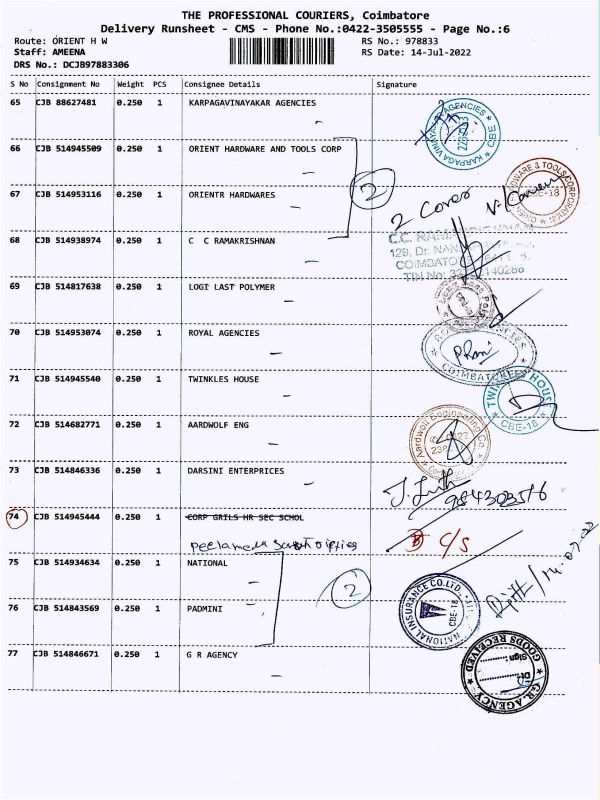 THE PROFESSIONAL COURIERS, Coimbatore
Delivery Runsheet - CMS - Phone No.:0422-3505555 - Page No.:6
Route: ORIENT H W
RS No.: 978833
Staff: AMEENA
RS Date: 14-Jul-2022
DRS No.: DCJB97883306
S No Consignment No Weight PCS Consignee Details Signature
65 CJB 88627481 0.250 1 KARPAGAVINAYAKAR AGENCIES
66 CJB 514945509 0.250 1 ORIENT HARDWARE AND TOOLS CORP
67 CJB 514953116 0.250 1 ORIENTR HARDWARES
2
2 Cover
68 CJB 514938974 0.250 1 C C RAMAKRISHNAN
69 CJB 514817638 0.250 1 LOGI LAST POLYMER
70 CJB 514953074 0.250 1 ROYAL AGENCIES
COIMBATORE
71 CJB 514945540 0.250 1 TWINKLES HOUSE
TWINKLES HOUSE
CBE-18
72 CJB 514682771 0.250 1 AARDWOLF ENG
Aardwolf Engineering Co.
73 CJB 514846336 0.250 1 DARSINI ENTERPRICES
74 CJB 514945444 0.250 1 CORP GRILS HR SEC SCHOL
C/S
75 CJB 514934634 0.250 1 NATIONAL
2
NATIONAL INSURANCE CO.LTD.
CBE-18
76 CJB 514843569 0.250 1 PADMINI
77 CJB 514846671 0.250 1 G R AGENCY
GOODS RECEIVED
Sign:
Dt:
G.R. AGENCY